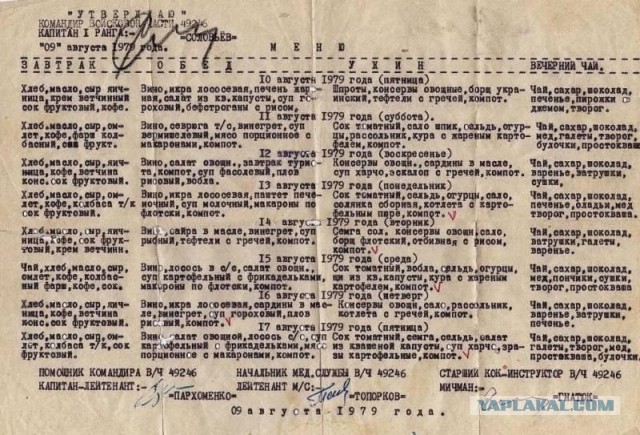 "УТВЕРЖДАЮ"
КОМАНДИР ВОЙСКОВОЙ ЧАСТИ 49246
КАПИТАН I РАНГА:- =СОЛОВЬЕВ=
"09" августа 1979 года. МЕНЮ
ЗАВТРАК ОБЕД УЖИН ВЕЧЕРНИЙ ЧАЙ.
10 августа 1979 года (пятница)
Хлеб,масло,сыр яич- Вино,икра лососевая,печень жаре- Шпроты,консервы овощные,борщ укра- Чай,сахар,шоколад,
ница,крем ветчинный ная,салат из кв.капусты,суп го- инский,тефтели с гречей,компот. печенье,пирожки с
сок фруктовый,кофе. роховый,бефстроганы с рисом, джемом,творог.
11 августа 1979 года (суббота).
Хлеб,масло,сыр,ом- Вино,севрюга т/с,винегрет,суп Сок томатный,сало шпик,сельдь,огур- Чай,сахар,шоколад,
лет,кофе,фарш кол- вермишелевый,мясо порционное с цы,рассольник,кура с жареным карто- мед,галеты,творог,
басный, фрукт. макаронами,компот. фелем,компот. булочки,простокваша
12 августа 1979 года (воскресенье)
Хлеб,масло,сыр,яич- Вино,салат овощн.,завтрак турис- Консервы овощн,сардины в масле, Чай,сахар,шоколад,
ница,кофе,ветчина та,компот,суп фасолевый,плов суп харчо,эскалоп с гречей,компот. варенье,ватрушки,
конс,сок фруктовый. рисовый,вобла. сушки.
13 августа 1979 года (понедельник)
Хлеб,масло,сыр,ом- Вино,икра лососевая,паштет пече- Сок томатный,сельдь,огурцы,сало, Чай,сахар,шоколад,
лет,кофе,колбаса т/к ночный,суп молочный,макароны по солянка сборная,котлета с карто- печенье,оладьи,мед
сок фруктовый. флотски,компот. фельным пюре,компот. творог,простокваша.
14 августа 1979 года (вторник)
Хлеб,масло,сыр,яич- Вино,сайра в масле,винегрет,суп Семга сол, консервы овощн,сало, Чай,сахар,шоколад,
ница,кофе,сок фрук- рыбный,тефтели с гречей,компот. борщ флотский,отбивная с рисом, ватрушки,галеты,
товый,крем ветчинн. компот. варенье.
15 августа 1979 года (среда)
Чай,хлеб,масло,сыр, Вино,лосось в с/с,салат овощн., Сок томатный,вобла,сельдь,огурцы, Чай,сахар,шоколад,
омлет,кофе,колбас- суп картофельный с фрикадельками, щи из кв.капусты,кура с жареным мед,пончики,сушки,
ный фарш,кофе,сок. макароны по флотски,компот. картофелем,компот. творог,простокваша.
16 августа 1979 года (четверг)
Хлеб,масло,сыр,яич- Вино,икра лососевая,сардины в мас- Консервы овощн,сало,рассольник, Чай,сахар,шоколад,
ница,кофе,ветчина ле,винегрет,суп гороховый,плов котлета с гречей,компот. варенье,ватрушки,
конс,сок фруктовый. рисовый,компот. печенье.
17 августа 1979 года (пятница)
Хлеб,масло,сыр,ом- Вино,салат овощной,лосось с/с,суп Сок томатный,семга,сельдь,салат Чай,сахар,шоколад,
лет,колбаса т/к,сок картофельный с фрикадельками,мясо из квашеной капусты,суп харчо,зра- галеты,творог,мед,
фруктовый. порционное с макаронами,компот. зы картофельные,компот. простокваша,булочки.
ПОМОЩНИК КОМАНДИРА В/Ч 49246 НАЧАЛЬНИК МЕД.СЛУЖБЫ В/Ч 49246 СТАРШИЙ КОК-ИНСТРУКТОР В/Ч 49246
КАПИТАН-ЛЕЙТЕНАНТ:- =ПАРХОМЕНКО= ЛЕЙТЕНАНТ М/С:- =ТОПОРКОВ= МИЧМАН:- =ГНАТОК=
09 августа 1979 года.
YAPLAKAL.COM